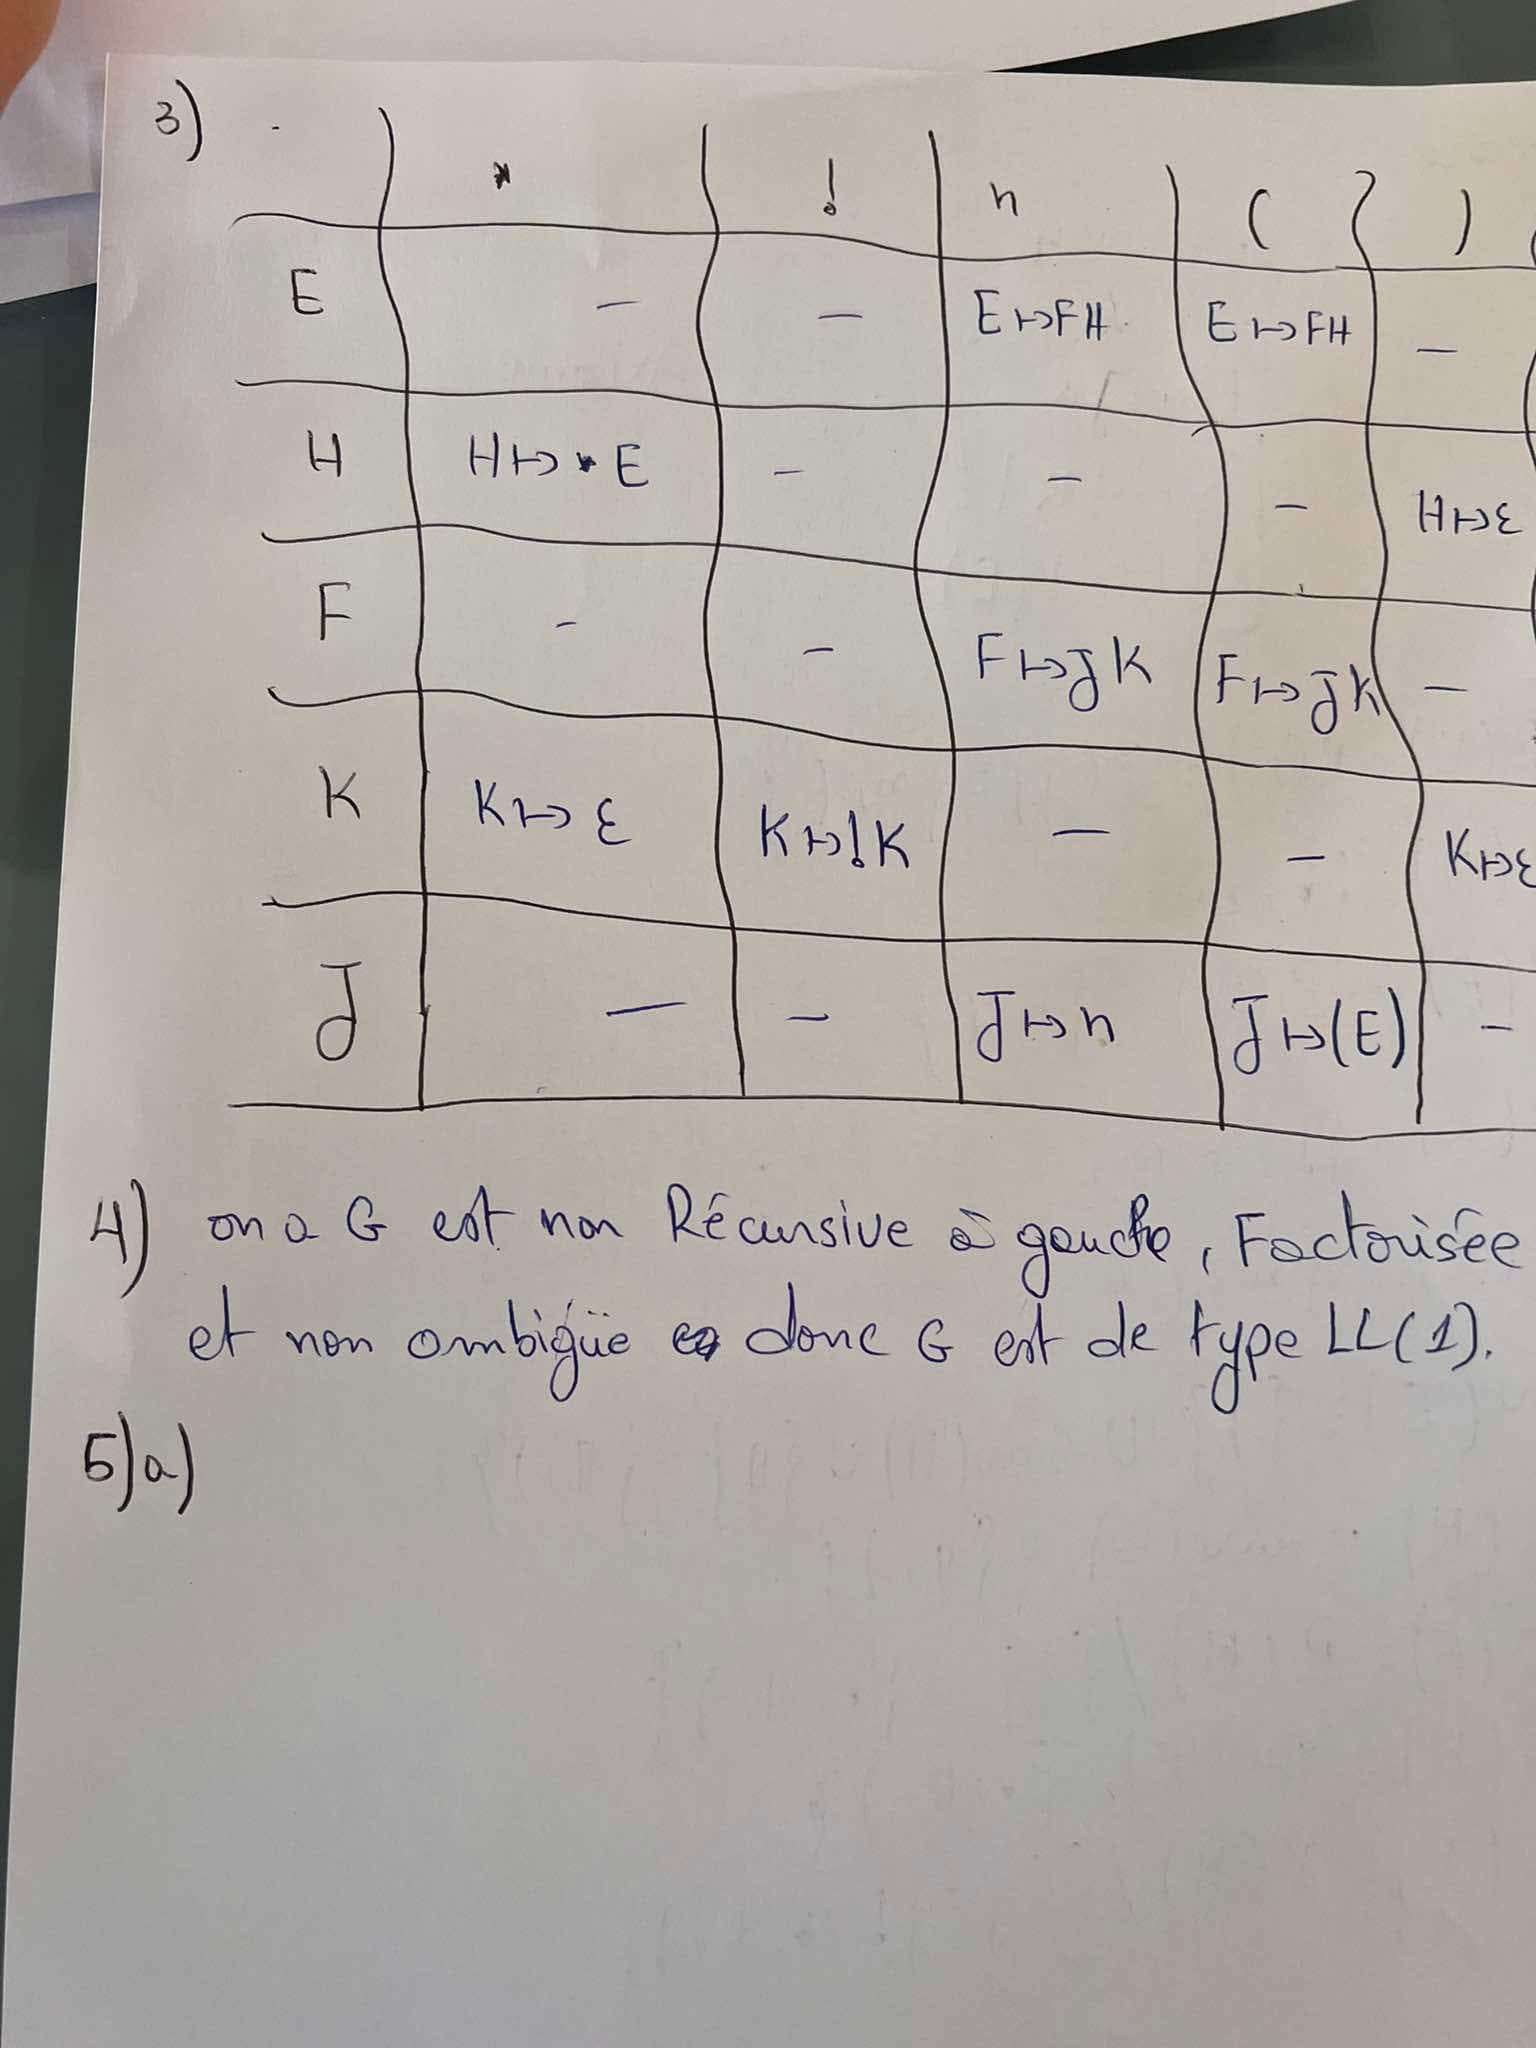 3)
* ! n ( )
E - - E↦FH E↦FH -
H H↦*E - - - H↦ε
F - - F↦JK F↦JK -
K K↦ε K↦!K - - K↦ε
J - - J↦n J↦(E) -
4) on a G est non Récursive à gauche, Factorisée
et non ambigüe donc G est de type LL(1).
5)a)